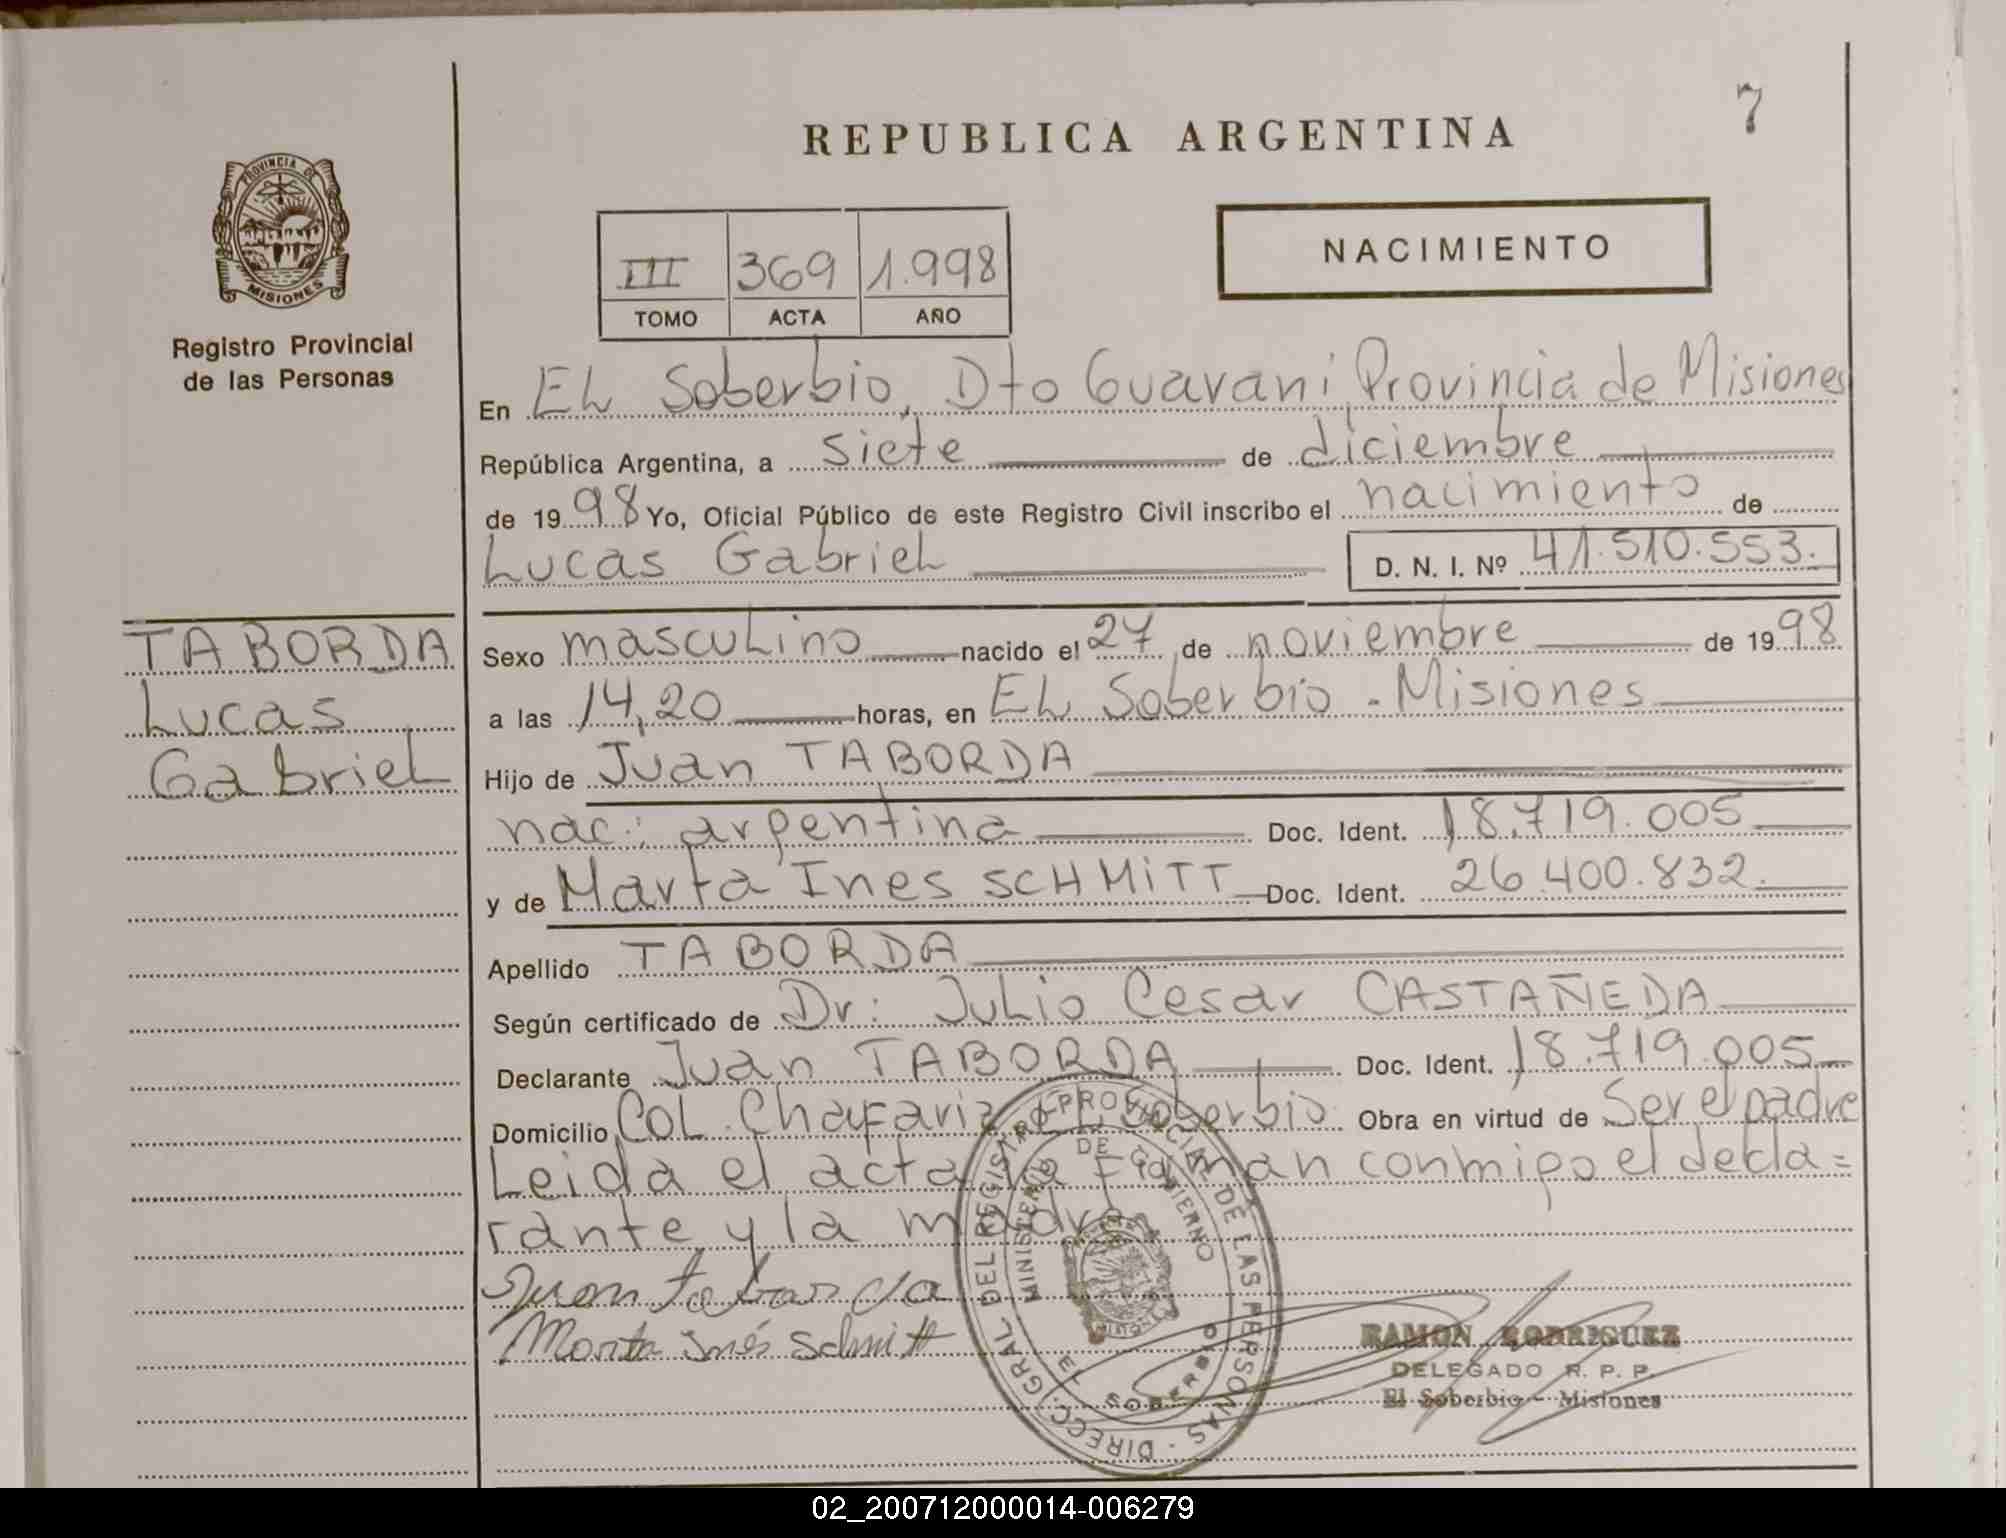 REPUBLICA ARGENTINA
7
PROVINCIA DE
MISIONES
Registro Provincial
de las Personas
III 369 1.998
TOMO ACTA AÑO
NACIMIENTO
En EL Soberbio, Dto Guaraní Provincia de Misiones
República Argentina, a siete de diciembre
de 1998 Yo, Oficial Público de este Registro Civil inscribo el nacimiento de
Lucas Gabriel D. N. I. Nº 41.510.553.
TABORDA
Lucas
Gabriel
Sexo masculino nacido el 27 de noviembre de 1998
a las 14,20 horas, en EL Soberbio - Misiones
Hijo de Juan TABORDA
nac: argentina Doc. Ident. 18.719.005
y de Marta Ines SCHMITT Doc. Ident. 26.400.832.
Apellido TABORDA
Según certificado de Dr: Julio Cesar CASTAÑEDA
Declarante Juan TABORDA Doc. Ident. 18.719.005
Domicilio COL. Chafariz EL Soberbio Obra en virtud de Ser el padre
Leida el acta la Firman conmigo el decla=
rante y la madre
Juan Taborda
Marta Inés Schmitt
DIRECC. GRAL DEL REGISTRO PROVINCIAL DE LAS PERSONAS
MINISTERIO DE GOBIERNO
MISIONES
EL SOBERBIO
RAMON RODRIGUEZ
DELEGADO R. P. P.
El Soberbio - Misiones
02_200712000014-006279